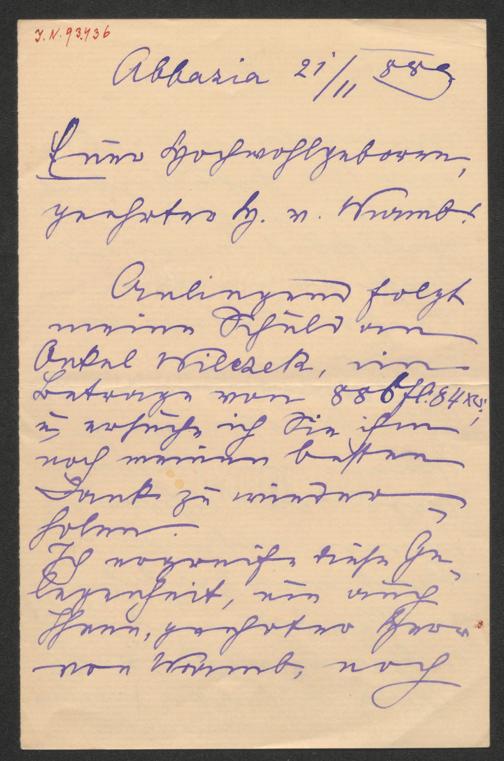 J.N. 93.436
Abbazia 21/11 889
Euer Hochwohlgeboren,
geehrter H. v. Wamb!
Anliegend folgt
meine Schuld an
Onkel Wilczek, im
Betrage von 886 fl. 84 xr;
u ersuche ich Sie ihm
noch meinen besten
Dank zu wieder-
holen.
Ich ergreife diese Ge-
legenheit, um auch
Ihnen, geehrter Herr
von Wamb, noch